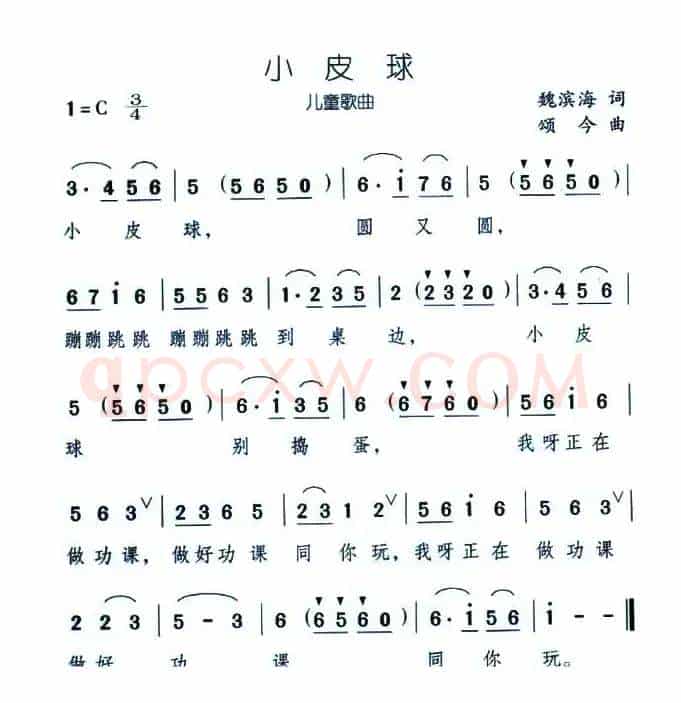 小皮球
1=C 3/4 儿童歌曲 魏滨海 词
颂今 曲
3·4 56 | 5 (5650) | 6·i 76 | 5 (5650) |
小皮球， 圆又圆，
67i6 | 5563 | 1·2 35 | 2 (2320) | 3·4 56 |
蹦蹦跳跳 蹦蹦跳跳 到桌边， 小皮
qpcxw.COM
5 (5650) | 6·i 35 | 6 (6760) | 56i6 |
球 别捣蛋， 我呀正在
5 6 3 ∨ | 2365 | 23 1 2 ∨ | 56i6 | 5 6 3 ∨ |
做功课，做好功课 同你玩，我呀正在 做功课
2 2 3 | 5 - 3 | 6 (6560) | 6·i 56 | i - - ‖
做好 功 课 同你玩。